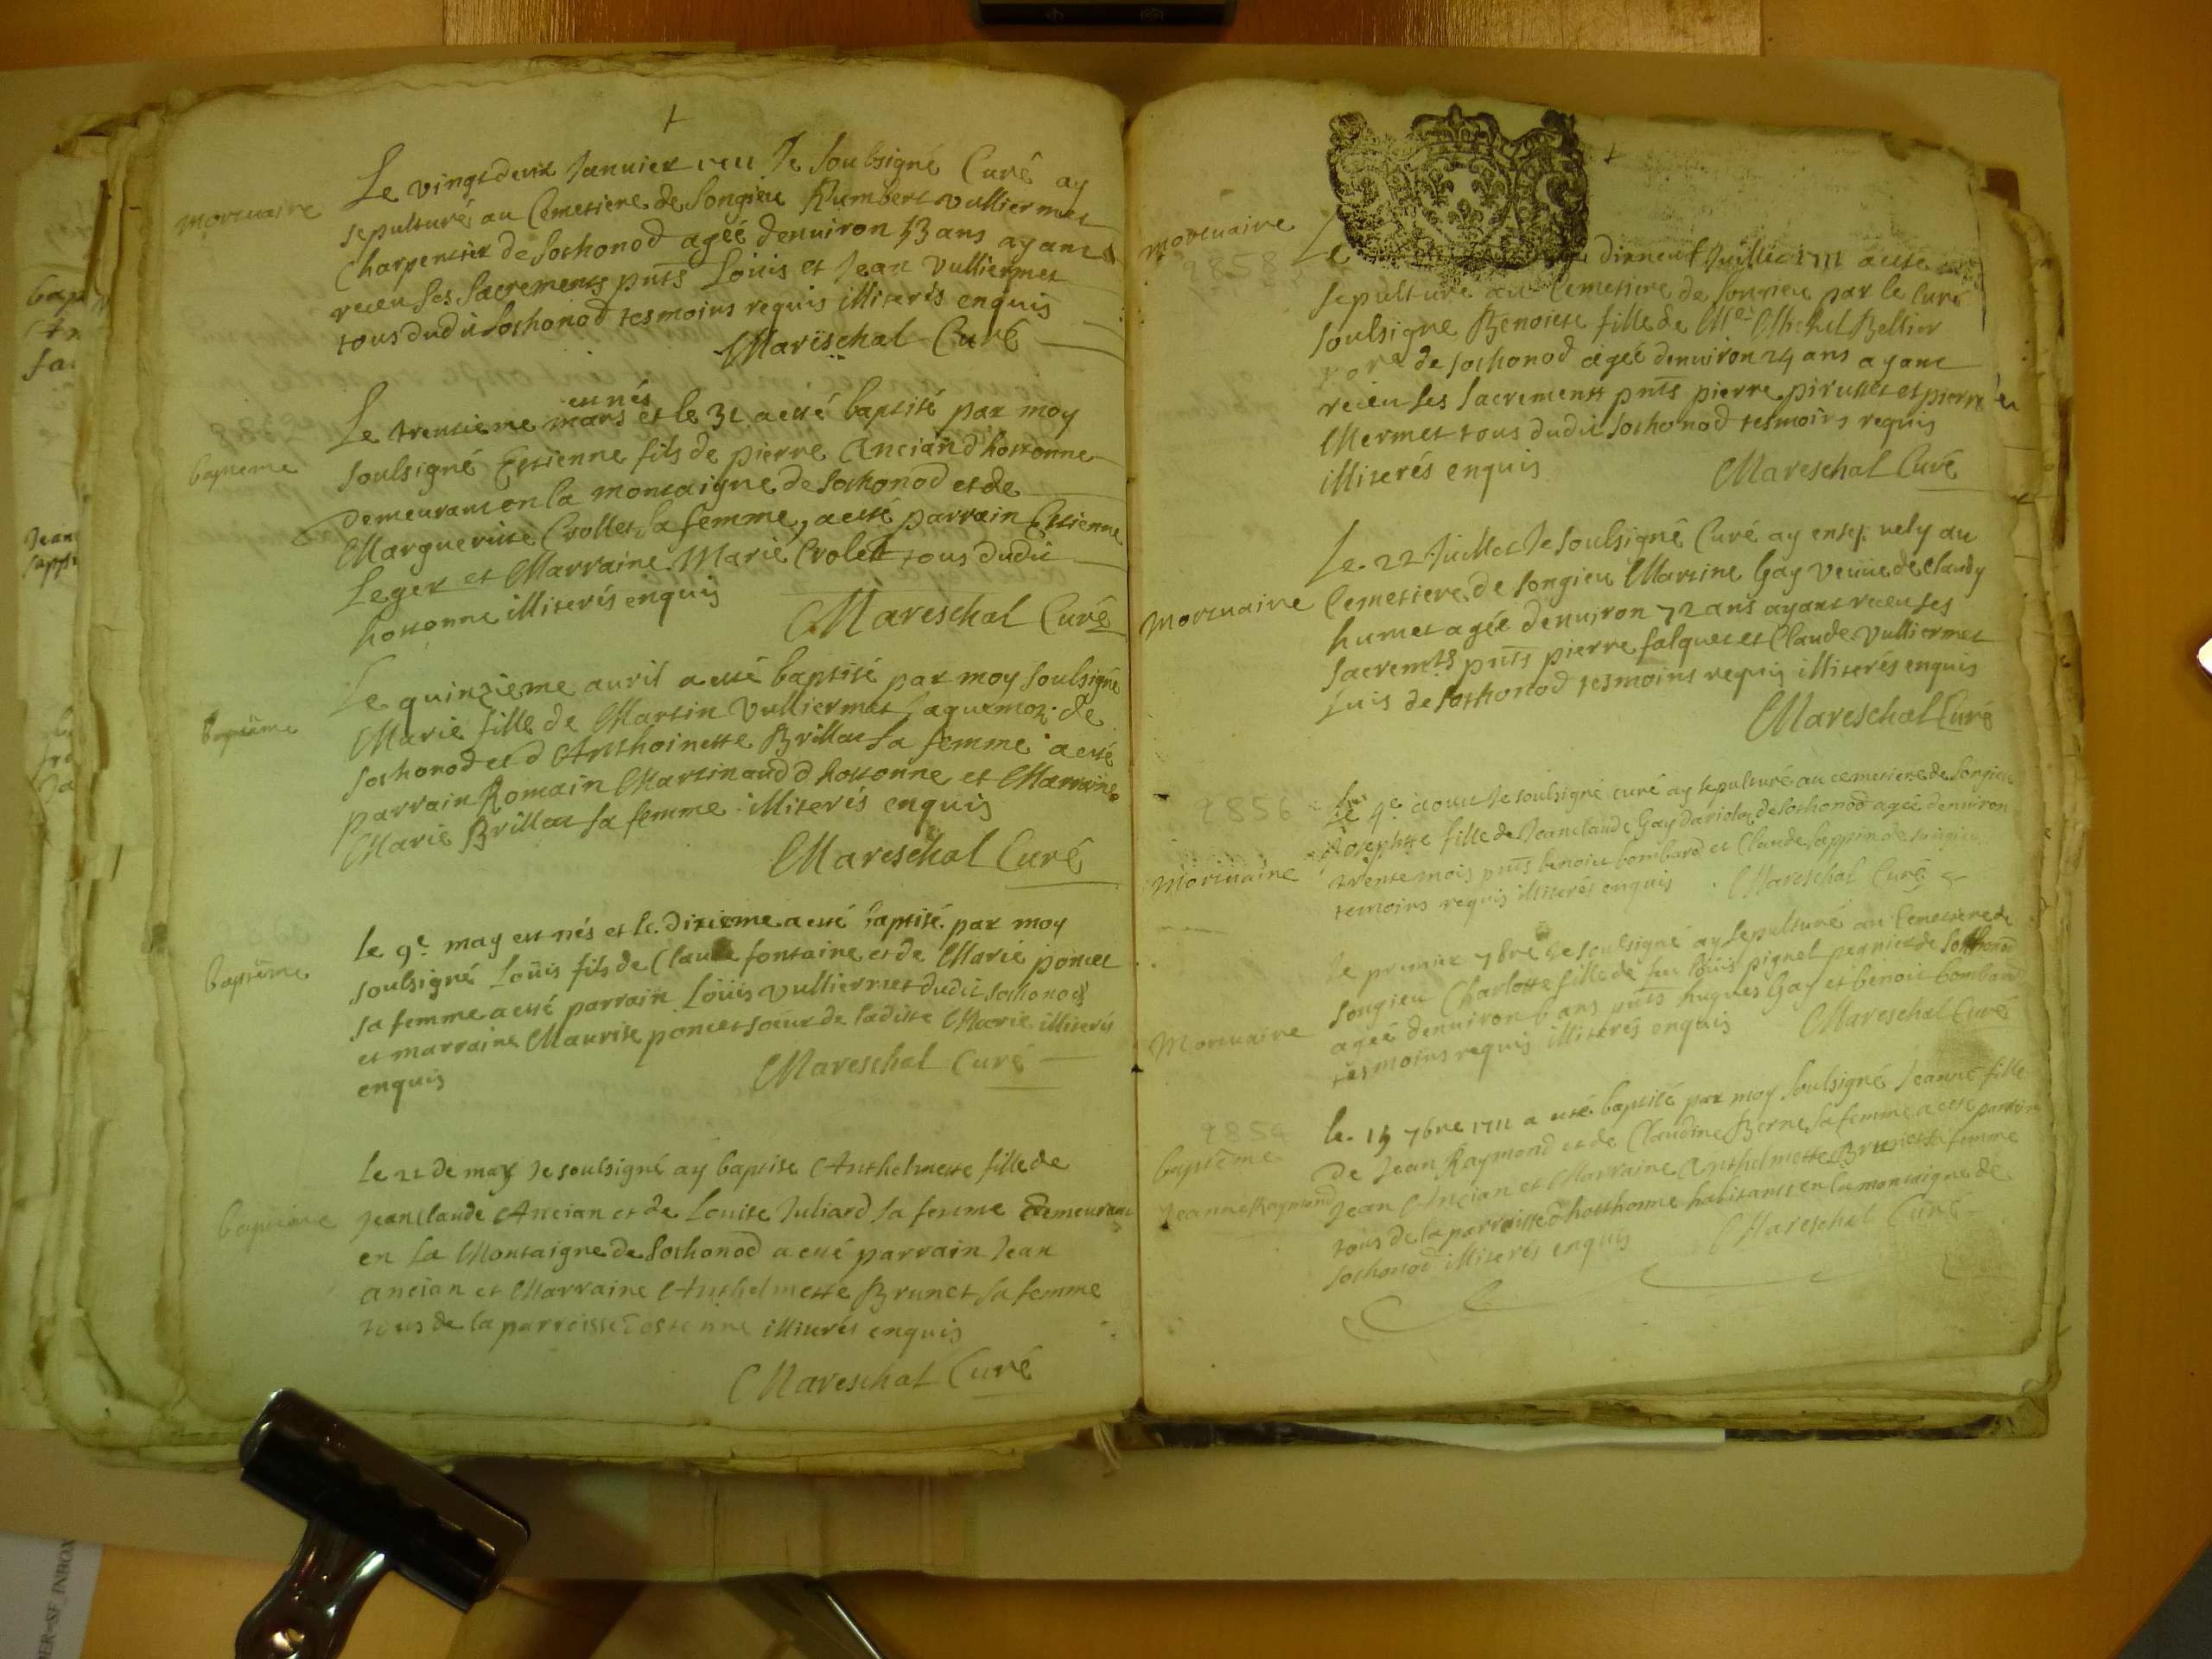 mortuaire
Le vingtdeux Januier 1711 Je soubsigné Curé ay
sepulturé au Cemetiere de Songieu Humbert vulliermet
Charpentier de Sothonod ageé denuiron 53 ans ayant
receu ses Sacrements pnts Loüis et Jean vulliermet
tous dudit Sothonod tesmoins requis illiterés enquis
Mareschal Curé
bapteme
est nés
Le trentieme mars et le 31 a esté baptisé par moy
soulsigné Estienne fils de pierre Ancian d'hostonne
demeurant en la montaigne de Sothonod et de
Margueritte Crollet sa femme, a esté parrain Estienne
Leger et Marraine Marie Crolett tous dudit
hostonne illiterés enquis
Mareschal Curé
baptême
Le quinzieme auril a esté baptisé par moy soulsigné
Marie fille de Martin Vulliermet de
Sothonod et d'Anthoinette Brillat sa femme a esté
parrain Romain Martinaud d'hostonne et Marraine
Marie Brillat sa femme illiterés enquis
Mareschal Curé
baptême
le 9e. may est nés et le dixieme a esté baptisé par moy
soulsigné Loüis fils de Claude fontaine et de Marie poncet
sa femme a esté parrain Loüis vulliermet dudit sothonod
et marraine Maurise poncet soeur de laditte Marie illiterés
enquis
Mareschal Curé
baptême
le 21 de may Je soulsigné ay baptisé Anthelmette fille de
Jeanclaude Ancian et de Louise Juliard sa femme demeurant
en la Montaigne de Sothonod a esté parrain Jean
ancian et Marraine Anthelmette Brunet sa femme
tous de la parroisse illiterés enquis
Mareschal Curé
mortuaire
9858
Le dixneuf Juillet 1711 a esté
sepulturé au Cemetiere de Songieu par le Curé
soulsigné Benoiste fille de Me. Michel Bellier
de Sothonod ageé denuiron 24 ans ayant
receu ses Sacrements pnts pierre et pierre
Mermet tous dudit Sothonod tesmoins requis
illiterés enquis
Mareschal Curé
mortuaire
Le 22 Juillet Je soulsigné Curé ay ensepuely au
Cemetiere de Songieu Martine Gay veuue de Claudy
humet ageé denuiron 72 ans ayant receu ses
sacremts pnts pierre falquet et Claude Vulliermet
Juis de Sothonod tesmoins requis illiterés enquis
Mareschal Curé
9856
Mortuaire
Le 4e. aoust Je soulsigné curé ay sepulturé au cemetiere de Songieu
Josephtte fille de Jeanclaude Gay de Sothonod ageé denuiron
trente mois pnts benoit bombard et Claude sappin de Songieu
temoins requis illiterés enquis
Mareschal Curé
Mortuaire
Le premier 7bre Je soulsigné ay sepulturé au Cemetiere de
Songieu Charlotte fille de feu Loüis pignel de Sothonod
ageé denuiron 6 ans pnts hugues Gay et benoit bombard
tesmoins requis illiterés enquis
Mareschal Curé
9854
baptême
Jeanne Raymond
le 15 7bre 1711 a esté baptisé par moy soulsigné Jeanne fille
de Jean Raymond et de Claudine Berne sa femme a esté parrain
Jean Ancian et Marraine Anthelmette Brunet sa femme
tous de la parroisse d'hosthonne habitants en la montaigne de
Sothonod illiterés enquis
Mareschal Curé